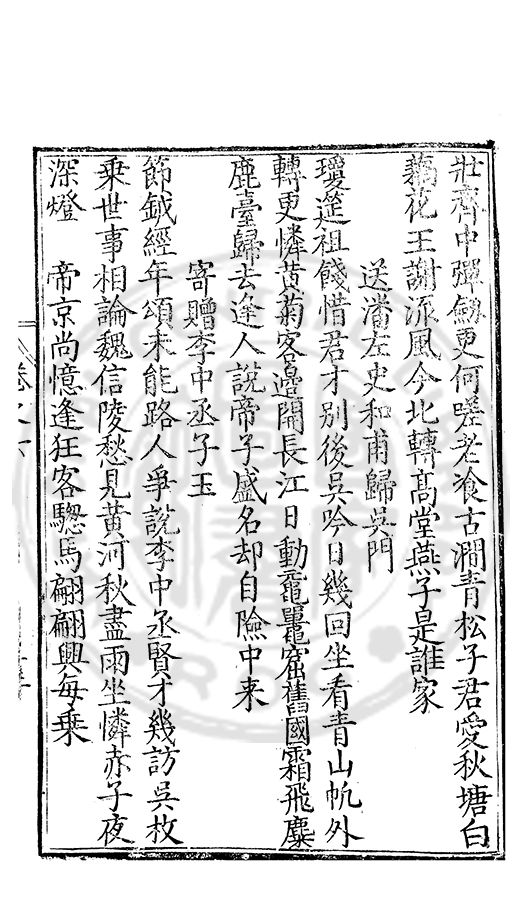 壯齊中彈劒更何嗟老飡古澗青松子君愛秋塘白
藕花王謝派風今北轉髙堂燕子是誰家
送潘左史和甫歸吳門
瓊筵祖餞惜君才別後吳吟日幾回坐看青山帆外
轉更憐黄菊客邉開長江日動黿鼉窟舊國霜飛麋
鹿臺歸去逢人說帝子盛名却自險中来
寄贈李中丞子玉
節鉞經年頌未能路人爭說李中丞賢才幾訪吳枚
乗世事相論魏信陵愁見黄河秋盡雨坐憐赤子夜
深燈　帝京尚憶逢狂客驄馬翩翩興每乗